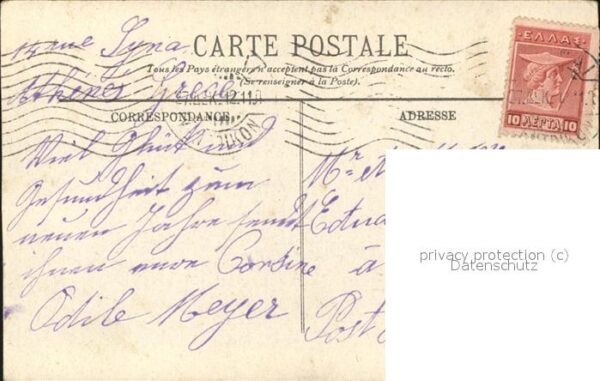 rue Syna
CARTE POSTALE
Athènes
Tous les Pays étrangers n'acceptent pas la Correspondance au recto.
(Se renseigner à la Poste).
CORRESPONDANCE
ADRESSE
ΕΛΛΑΣ
10 ΛΕΠΤΑ 10
Viel Glück und
Gesundheit zum
neuen Jahre sendt
ihnen Cousine
Odile Meyer
Mr
à
Post
privacy protection (c)
Datenschutz